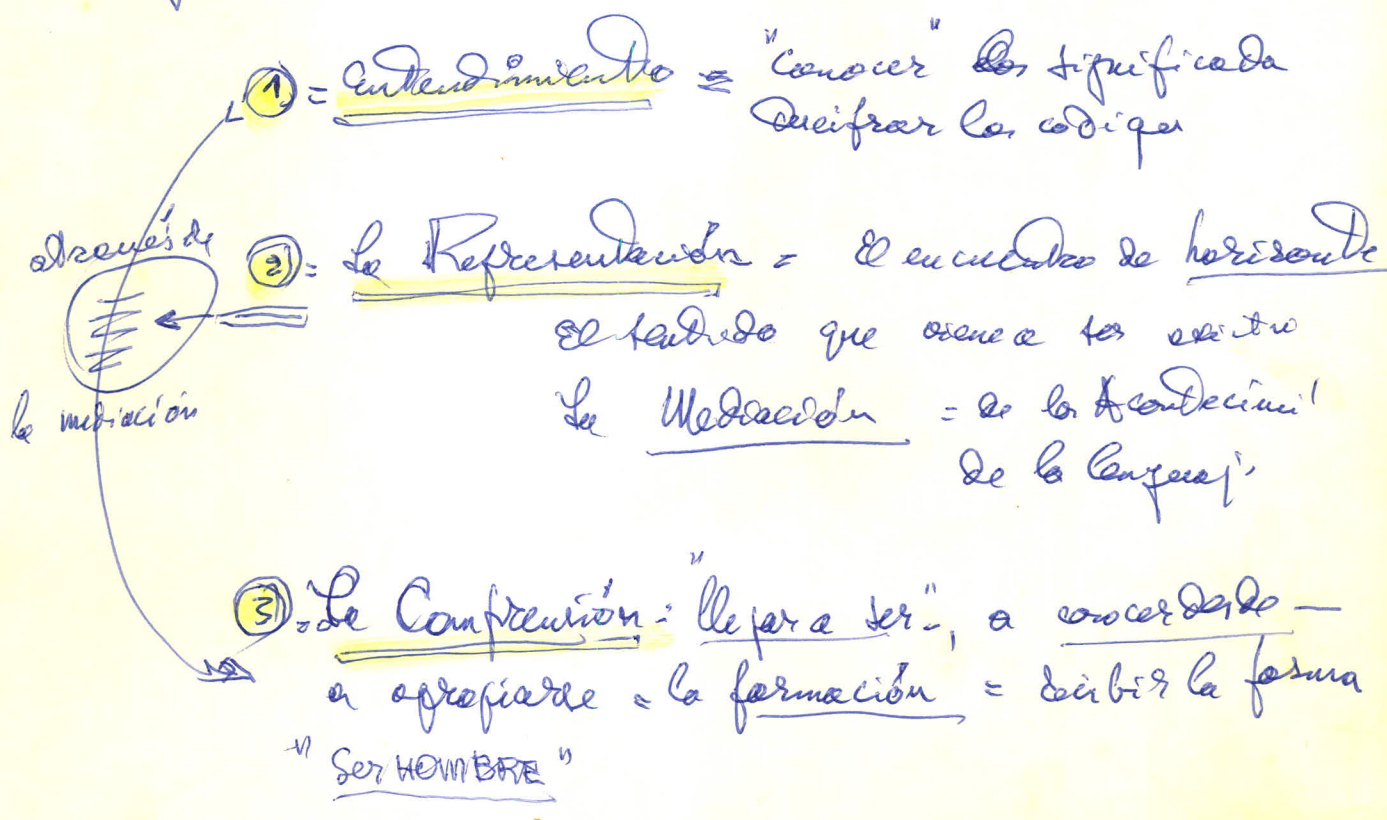 ① = entendimiento = "conocer" los significada
decifrar los codigos
através de
② = La Representación = El encuentro de horisonte
El sentido que viene a ser
la mediación
La Mediación = de los Acontecimi'
de la lenguaj.
③ = La Comprensión = "llegar a ser", a conocer desde —
a apropiarse = la formación = recibir la forma
"Ser HOMBRE"